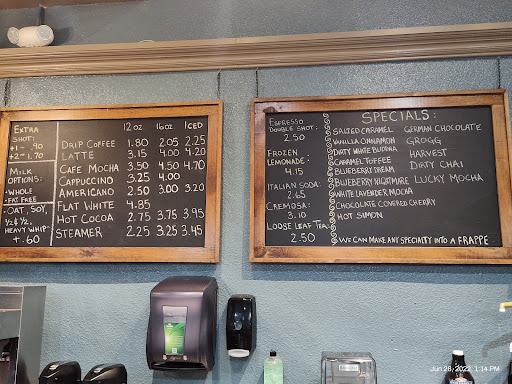 EXTRA SHOT:
+1 - .90
+2 - 1.70
MILK OPTIONS:
-WHOLE
-FAT FREE
-OAT, SOY,
½ & ½,
HEAVY WHIP-
+ .60
12oz 16oz ICED
DRIP COFFEE 1.80 2.05 2.25
LATTE 3.15 4.00 4.20
CAFE MOCHA 3.50 4.50 4.70
CAPPUCCINO 3.25 4.00
AMERICANO 2.50 3.00 3.20
FLAT WHITE 4.85
HOT COCOA 2.75 3.75 3.95
STEAMER 2.25 3.25 3.45
ESPRESSO
DOUBLE SHOT:
2.50
FROZEN
LEMONADE:
4.15
ITALIAN SODA:
2.65
CREMOSA:
3.10
LOOSE LEAF TEA:
2.50
SPECIALS:
SALTED CARAMEL GERMAN CHOCOLATE
VANILLA CINNAMON GROGG
DIRTY WHITE BUDDHA HARVEST
CARAMEL TOFFEE DIRTY CHAI
BLUEBERRY DREAM
BLUEBERRY NIGHTMARE LUCKY MOCHA
WHITE LAVENDER MOCHA
CHOCOLATE COVERED CHERRY
HOT SIMON
WE CAN MAKE ANY SPECIALTY INTO A FRAPPE
Jun 28, 2022, 1:14 PM